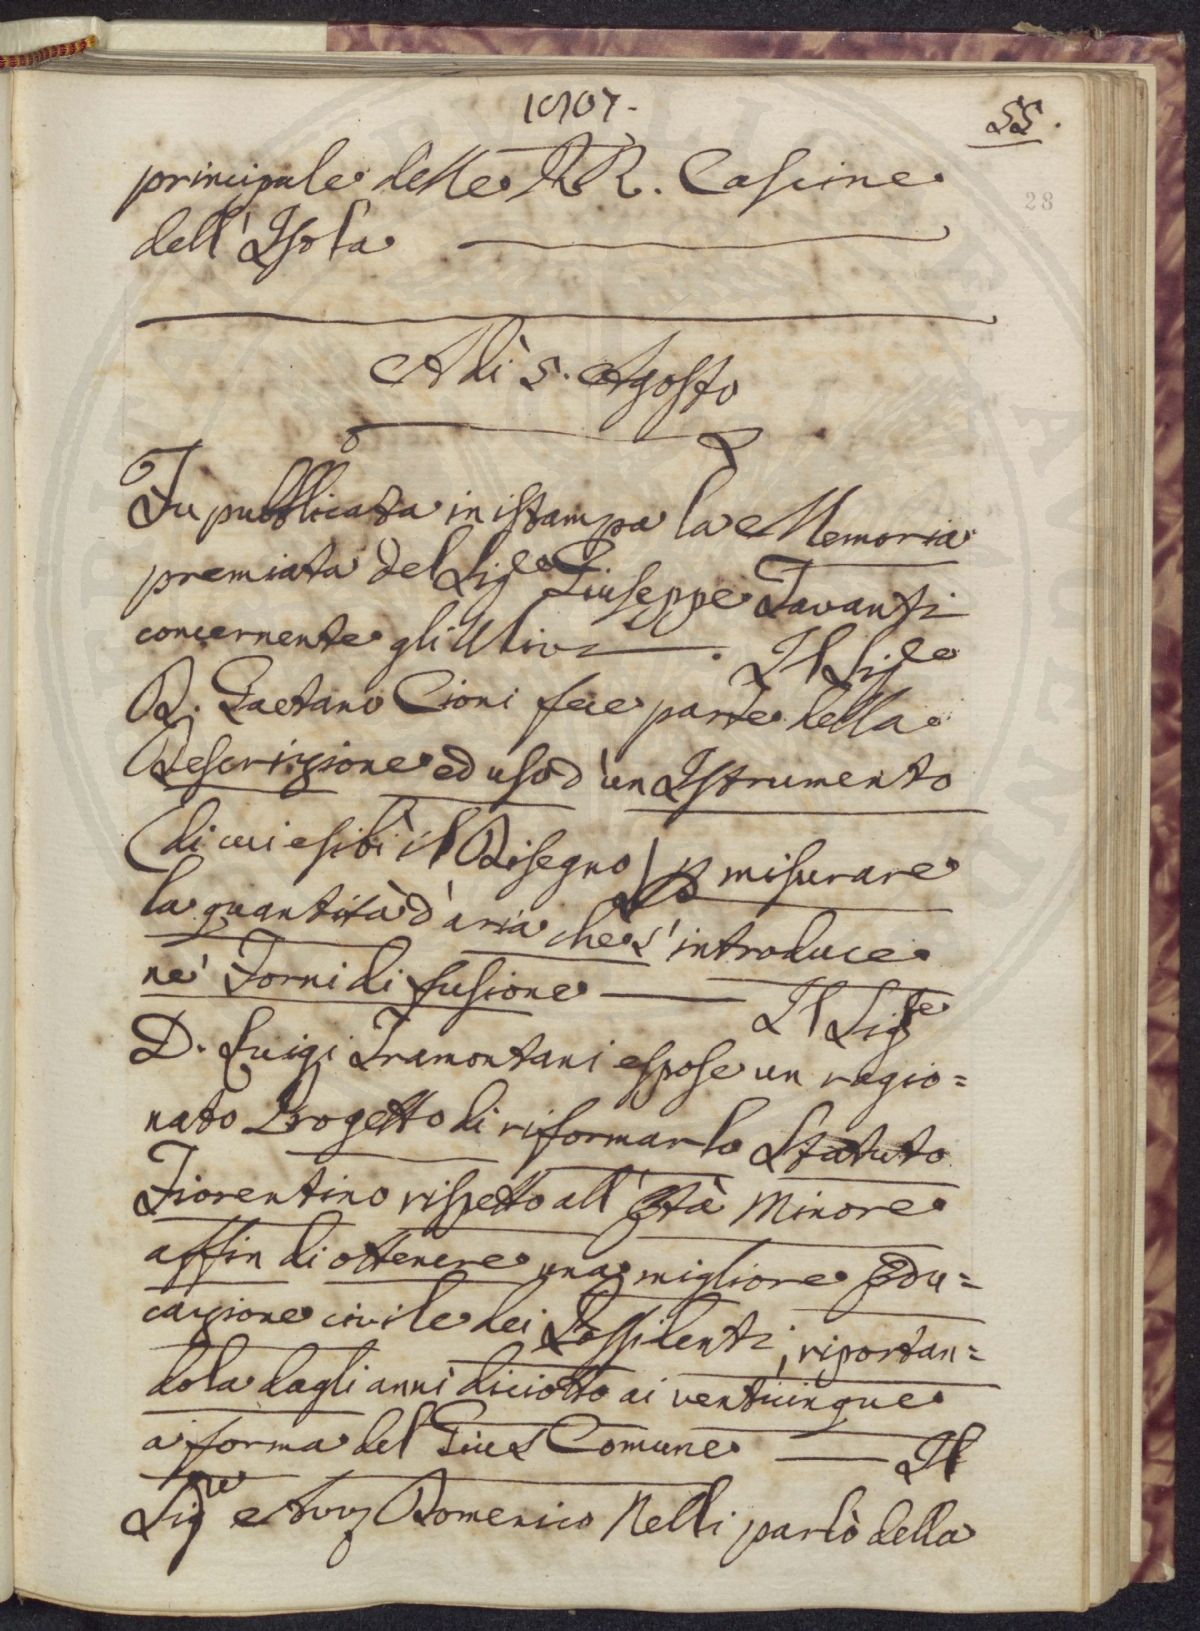 1807.
55.
28
principale delle RR. Cascine
dell' Isola
Adì 5. Agosto
Fu pubblicata in istampa la Memoria
premiata del Sig.re Giuseppe Tavanti
concernente gli Ulivi. Il Sig.re
D. Gaetano Cioni fece parte della
Descrizione ed uso d'un Istrumento
(di cui esibì il Disegno) p misurare
la quantità d'aria che s'introduce
ne' Forni di fusione — Il Sig.re
D. Luigi Tramontani espose un ragio=
nato Progetto di riformar lo Statuto
Fiorentino rispetto all' Età Minore
affin di ottenere una migliore Edu=
cazione civile dei Possidenti, riportan=
dola dagli anni diciotto ai venticinque
a forma del Gius Comune — Il
Sig.re Avv Domenico Nelli parlò della